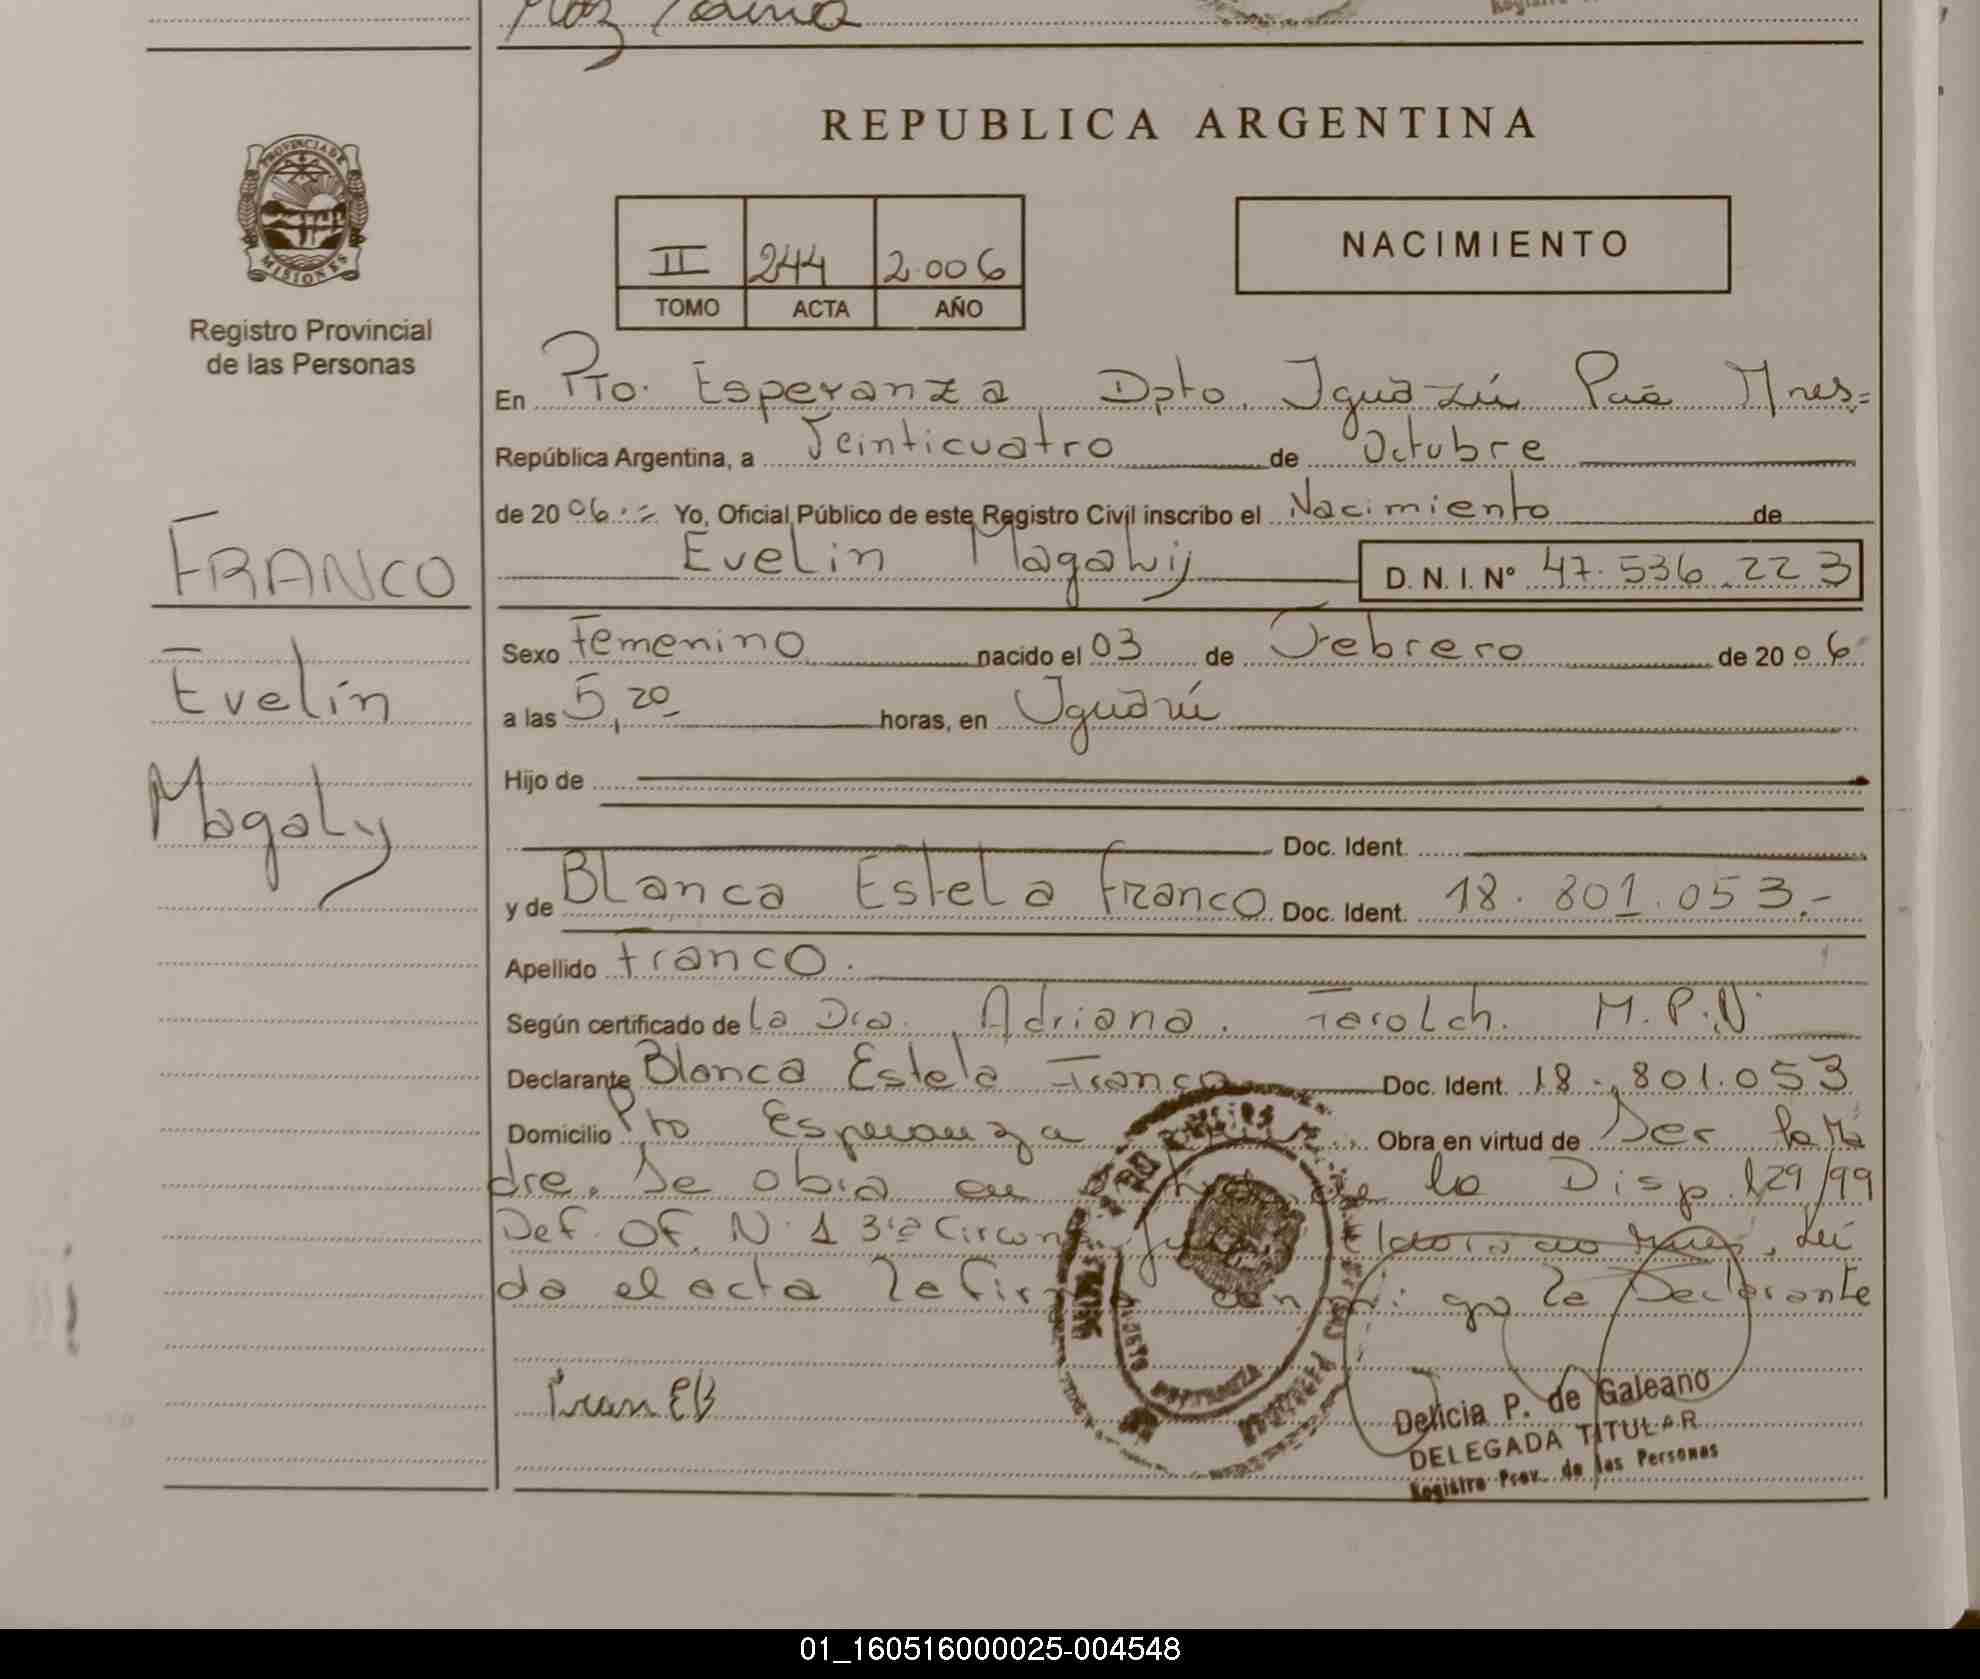 REPUBLICA ARGENTINA
PROVINCIA DE
MISIONES
Registro Provincial
de las Personas
II 244 2.006
TOMO ACTA AÑO
NACIMIENTO
En Pto. Esperanza Dpto. Iguazú Pcia Mnes=
República Argentina, a Veinticuatro de Octubre
de 20 06.= Yo, Oficial Público de este Registro Civil inscribo el Nacimiento de
Evelin Magaly D. N. I. Nº 47.536.223
FRANCO
Evelin
Magaly
Sexo Femenino nacido el 03 de Febrero de 20 06
a las 5,20 horas, en Iguazú
Hijo de
Doc. Ident.
y de Blanca Estela Franco Doc. Ident. 18.801.053.-
Apellido Franco.
Según certificado de la Dra. Adriana. M.P.N
Declarante Blanca Estela Franco Doc. Ident. 18.801.053
Domicilio Pto Esperanza Obra en virtud de Ser la Ma
dre. Se obra en de la Disp. 129/99
Def. Of. N. 1 3ra Circun Lei
da el acta la fir con mi go la Declarante
Delicia P. de Galeano
DELEGADA TITULAR
Registro Prov. de las Personas
01_160516000025-004548